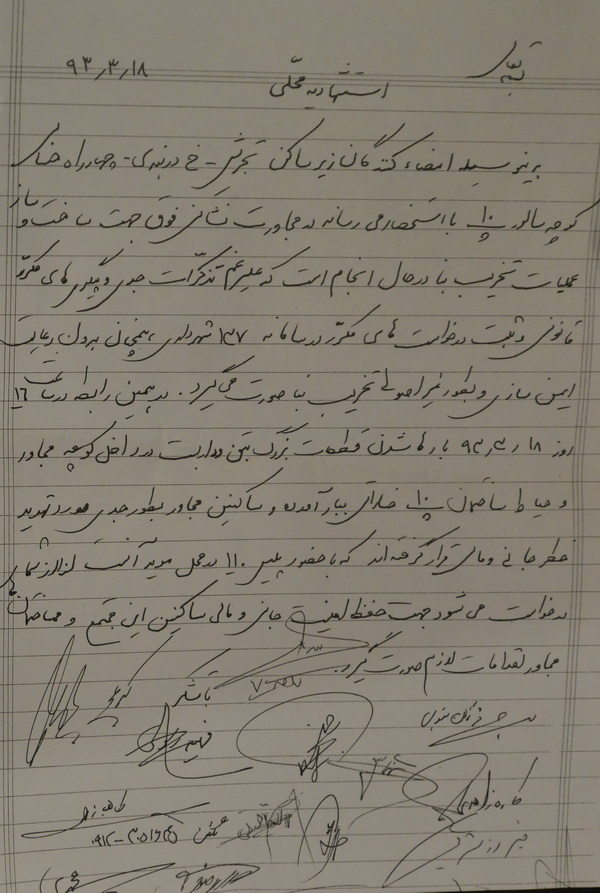 بسمه تعالی
۹۳٫۳٫۱۸
استشهادیه محلی
بدینوسیله امضاء کنندگان زیر ساکن تجریش - خ دربندی - چهارراه حسابی
کوچه سالور پ ۱۰ با استحضار می رساند در مجاورت نشانی فوق جهت ساخت و ساز
عملیات تخریب بنا در حال انجام است که علیرغم تذکرات جدی و پیگیری های مکرر
قانونی و ثبت درخواست های مکرر در سامانه ۱۳۷ شهرداری، همچنان بدون رعایت
ایمن سازی و بطور غیر اصولی تخریب بنا صورت می گیرد. در همین رابطه در ساعت ۱۶
روز ۹۳٫۳٫۱۸ با رها شدن قطعات بزرگ بتن و داربست در داخل کوچه مجاور
و حیاط ساختمان پ ۱۰ خساراتی ببار آمده و ساکنین مجاور بطور جدی مورد تهدید
خطر جانی و مالی قرار گرفته اند که با حضور پلیس ۱۱۰ در محل موید آنست لذا از شما
درخواست می شود جهت حفظ امنیت جانی و مالی ساکنین این مجتمع و ساختمان های
مجاور اقدامات لازم صورت گیرد.
با تشکر